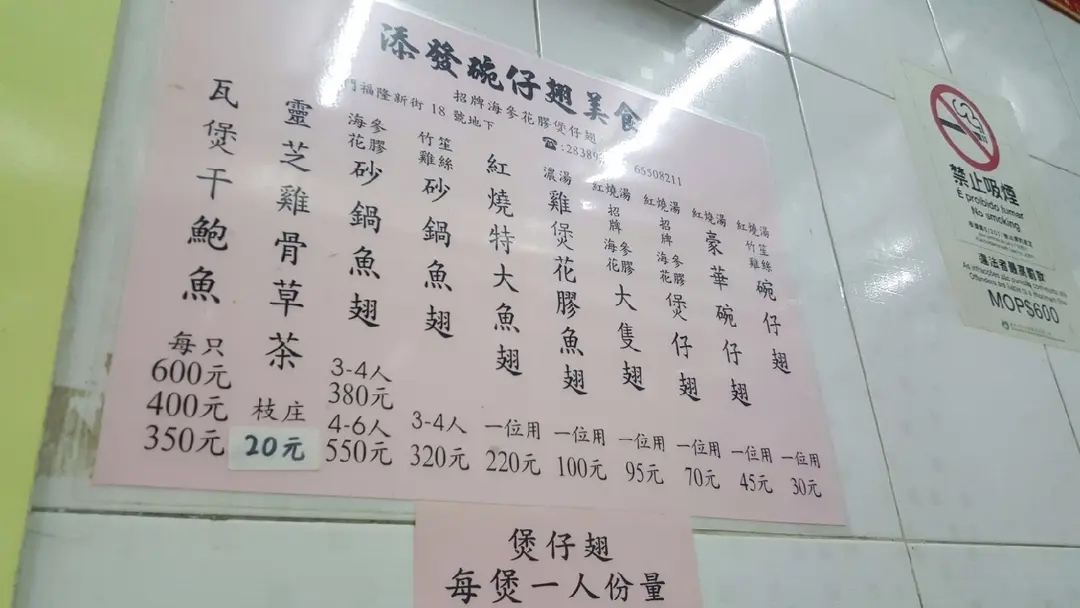 添發碗仔翅美食
招牌海參花膠煲仔翅
門福隆新街 18 號地下
65508211
紅燒湯 竹笙雞絲 碗仔翅
一位用
30元
紅燒湯 豪華碗仔翅
一位用
45元
紅燒湯 招牌 海參花膠 煲仔翅
一位用
70元
紅燒湯 招牌 海參花膠 大隻翅
一位用
95元
濃湯 雞煲花膠魚翅
一位用
100元
紅燒特大魚翅
一位用
220元
竹笙雞絲 砂鍋魚翅
3-4人
320元
海參花膠 砂鍋魚翅
3-4人
380元
4-6人
550元
靈芝雞骨草茶
枝庄
20元
瓦煲干鮑魚
每只
600元
400元
350元
煲仔翅
每煲一人份量
禁止吸煙
É proibido fumar
No smoking
違法者最高罰款
MOP$600